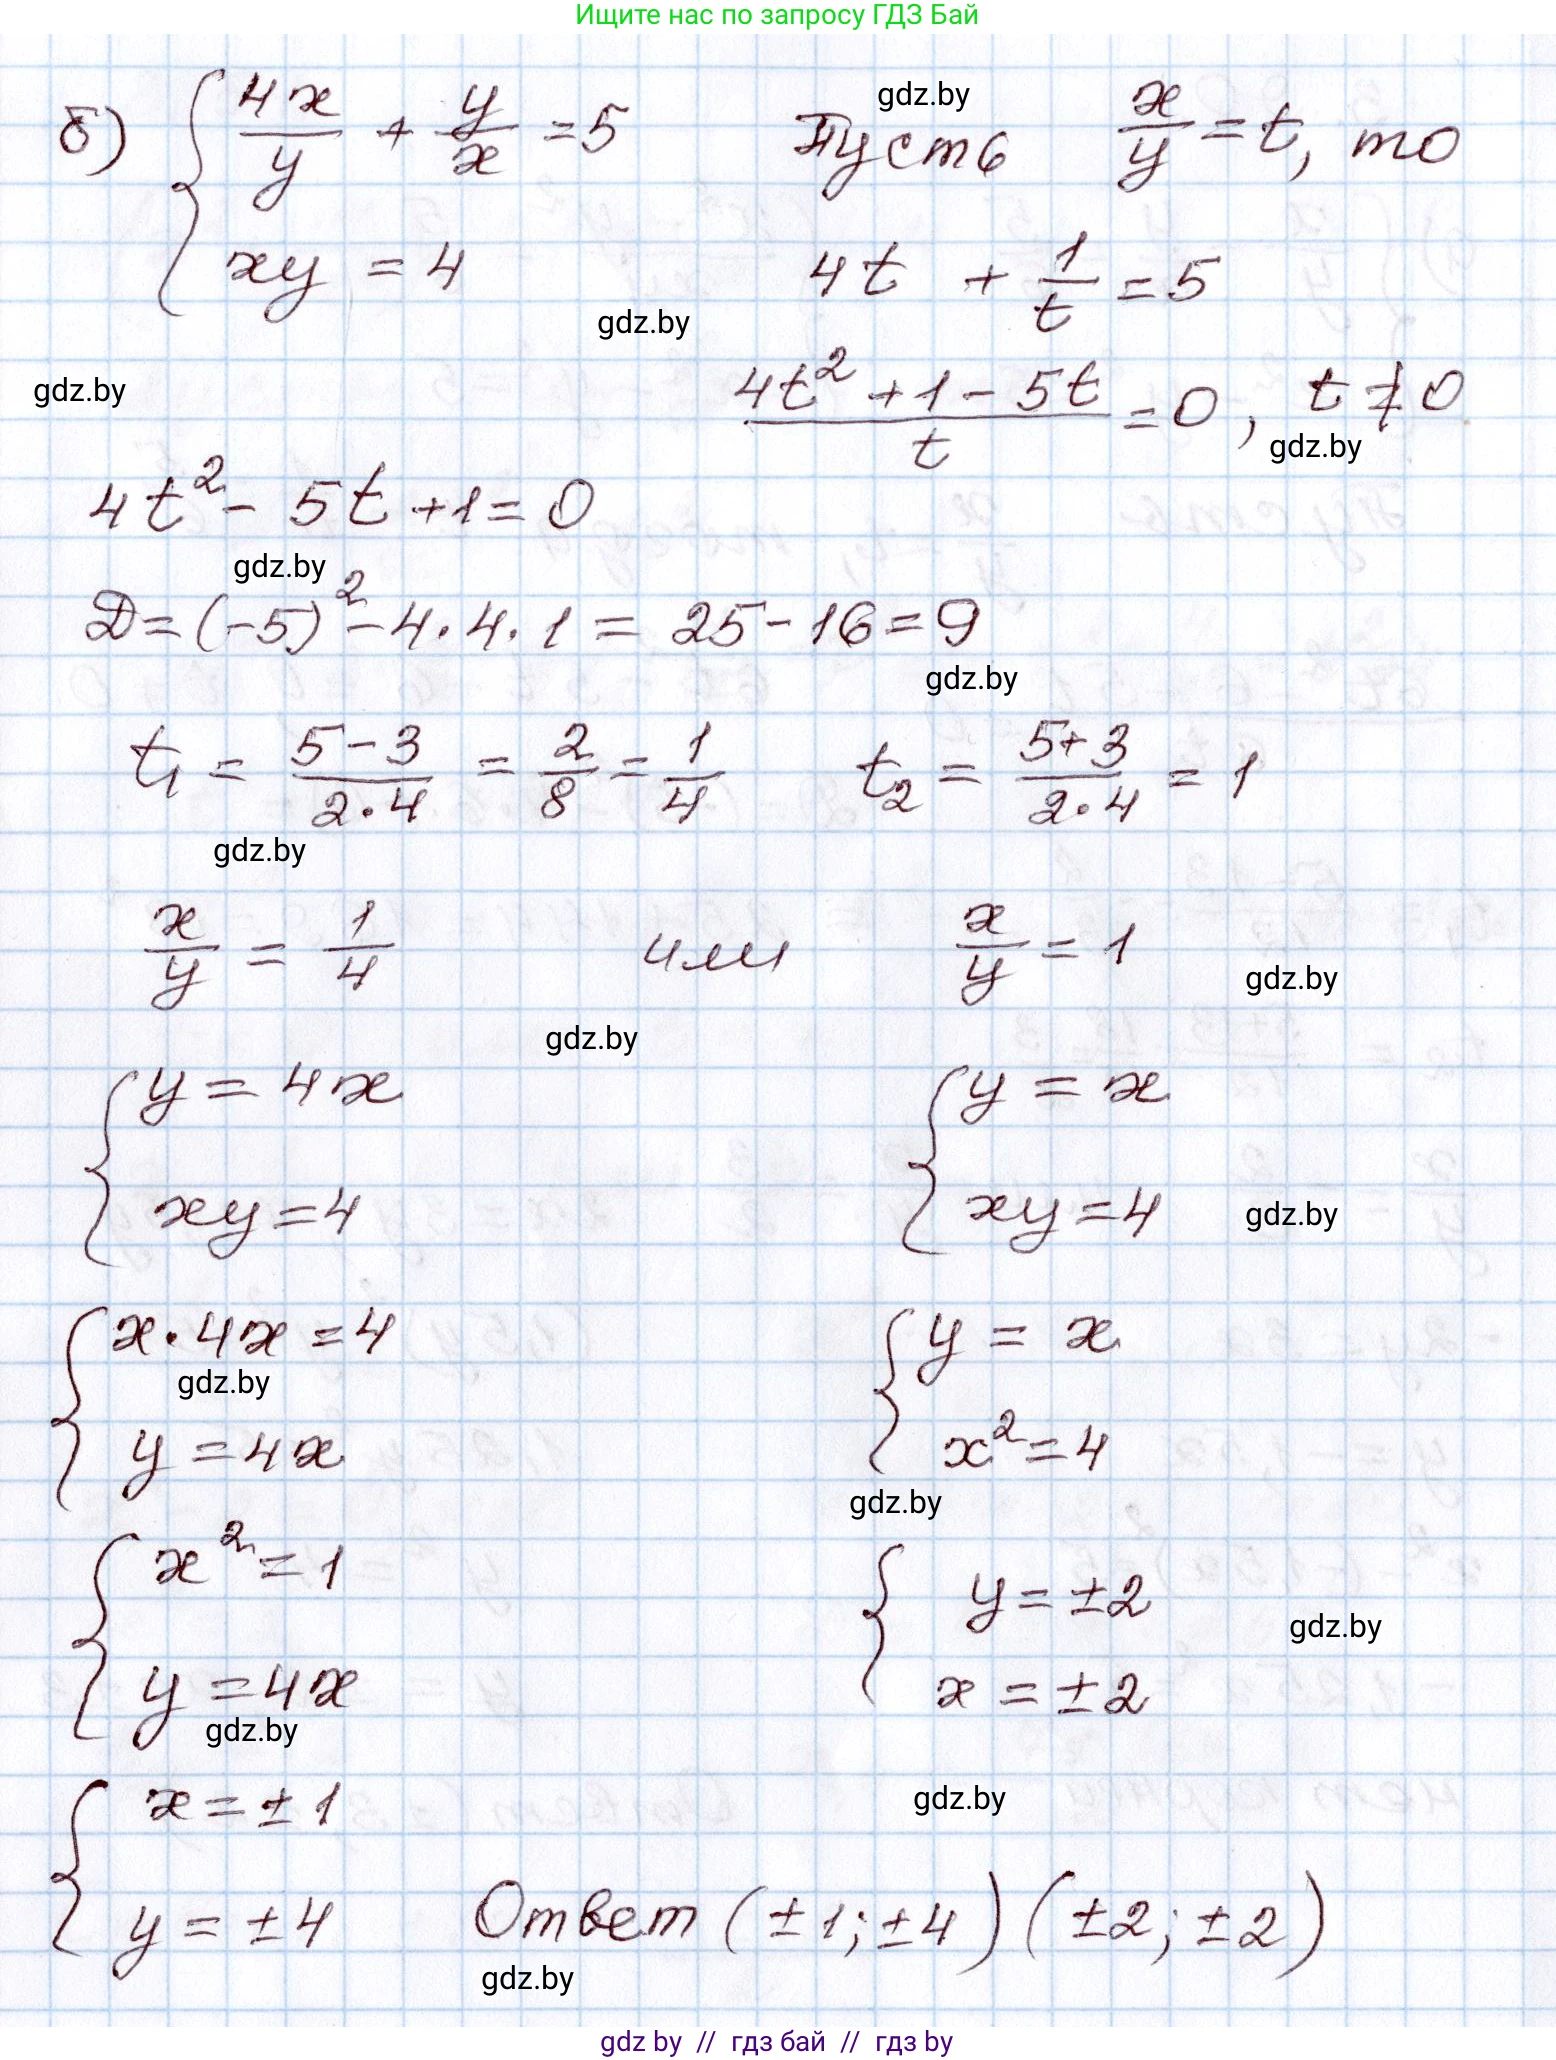 Ищите нас по запросу ГДЗ Бай
б) { 4x/y + y/x = 5 Пусть x/y = t, то
gdz.by
xy = 4 4t + 1/t = 5
gdz.by
gdz.by
(4t² + 1 - 5t)/t = 0, t ≠ 0
gdz.by
4t² - 5t + 1 = 0
gdz.by
D = (-5)² - 4·4·1 = 25 - 16 = 9
gdz.by
t₁ = (5-3)/(2·4) = 2/8 = 1/4 t₂ = (5+3)/(2·4) = 1
gdz.by
x/y = 1/4 или x/y = 1
gdz.by
gdz.by
{ y = 4x { y = x
xy = 4 xy = 4
gdz.by
{ x·4x = 4 { y = x
gdz.by
y = 4x x² = 4
gdz.by
{ x² = 1 { y = ±2
gdz.by
y = 4x x = ±2
gdz.by
{ x = ±1
gdz.by
y = ±4 Ответ (±1; ±4) (±2; ±2)
gdz.by
gdz by // гдз бай // гдз by